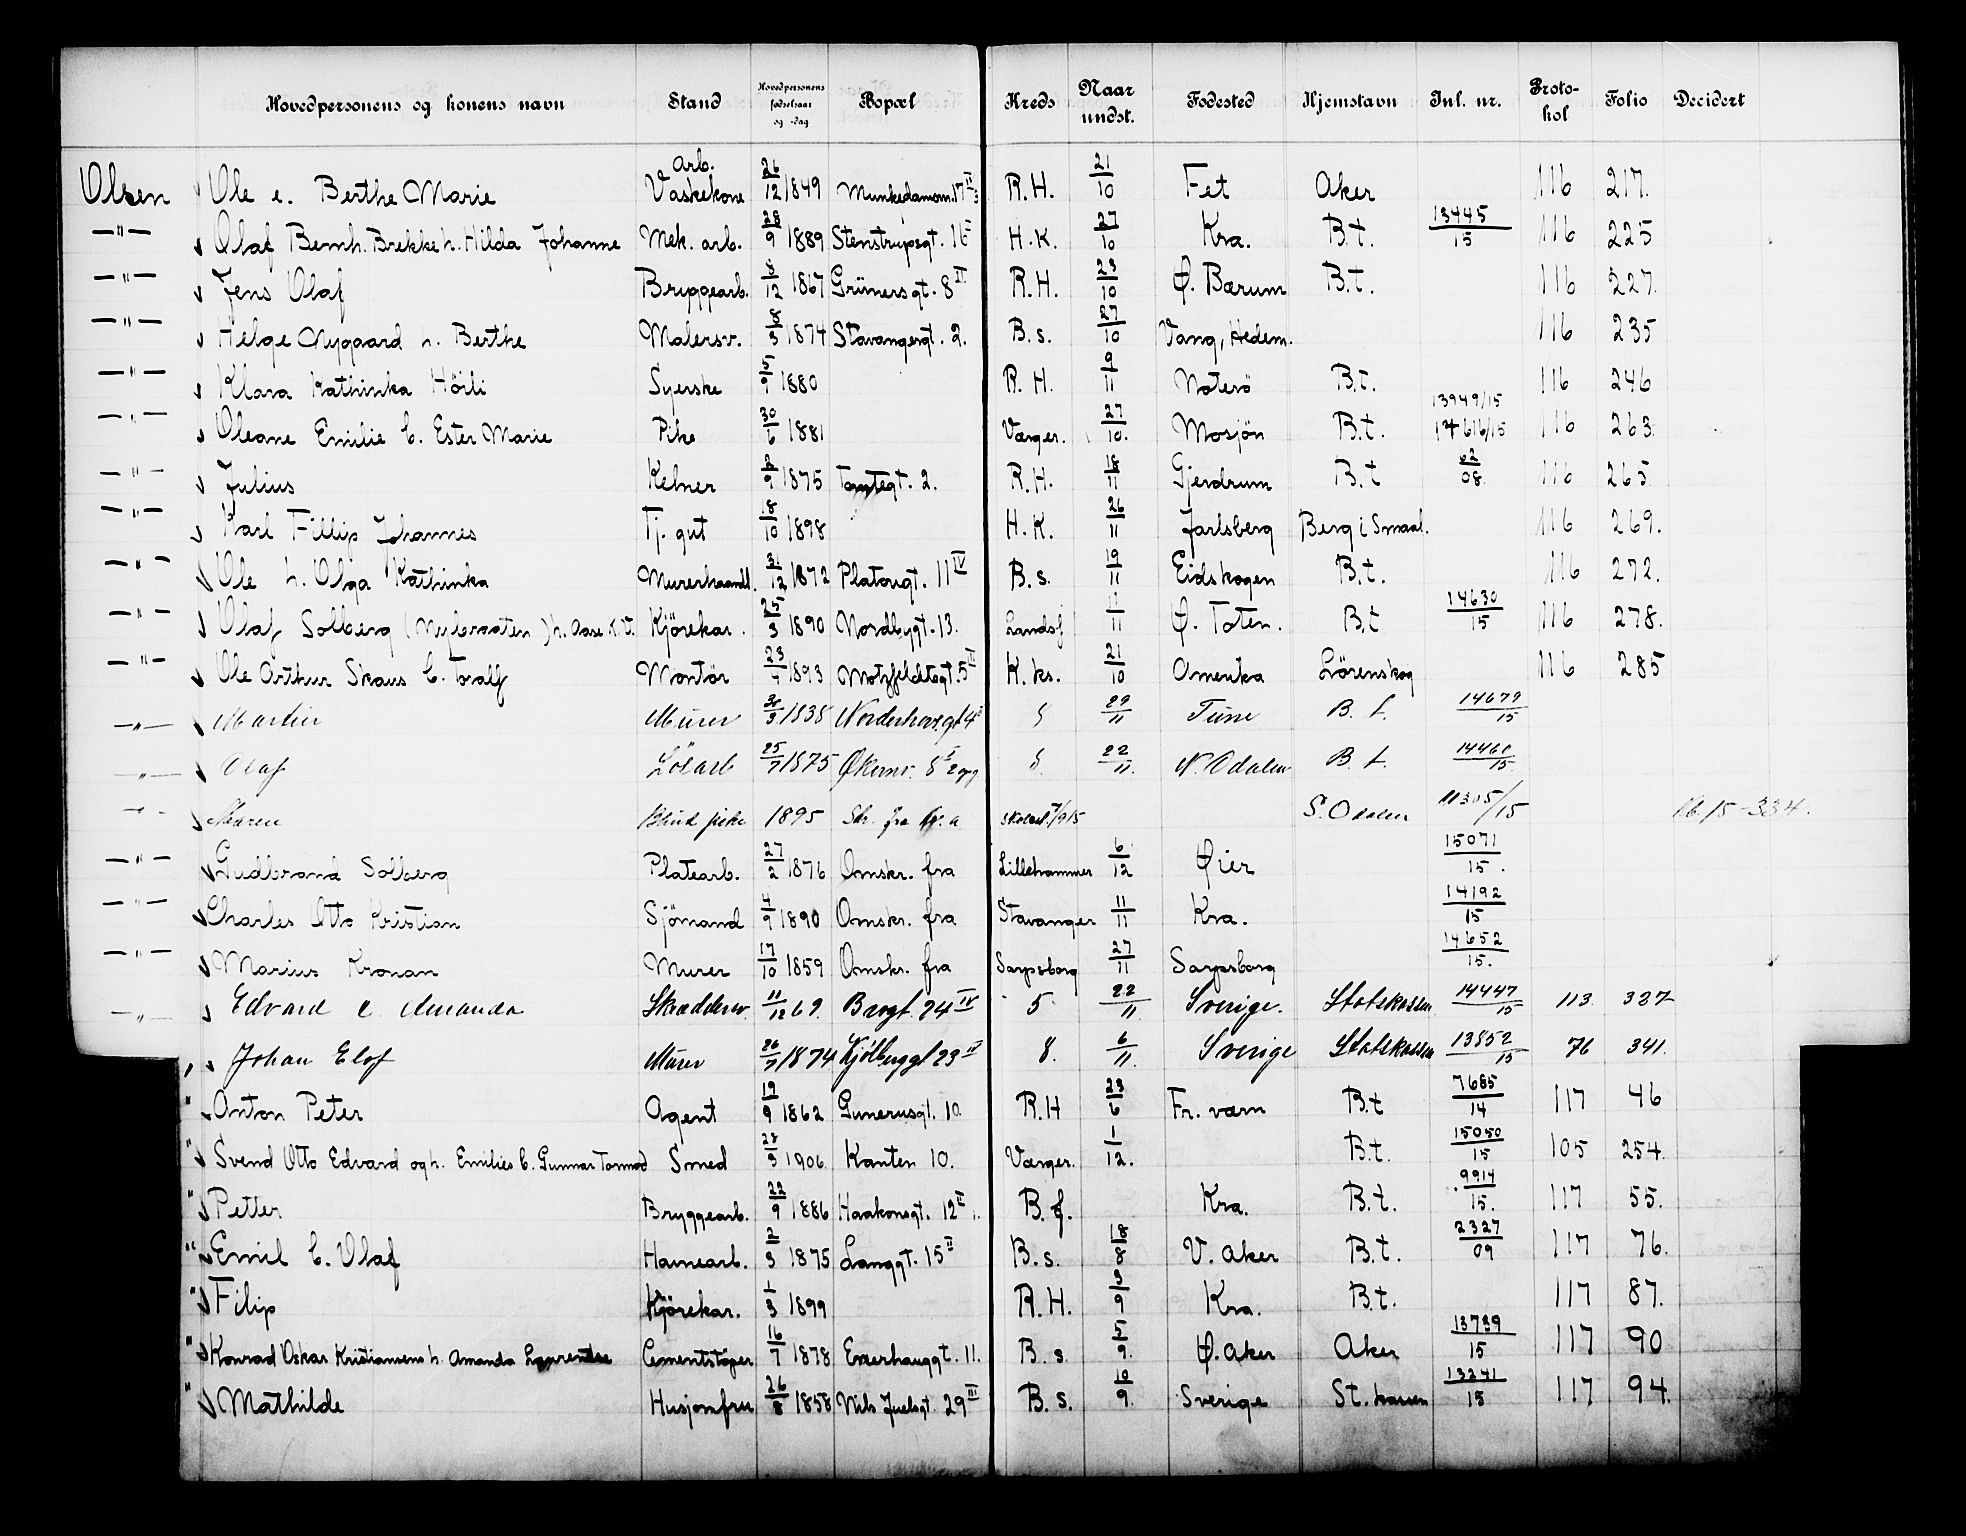 Hovedpersonens og konens navn Stand Hovedpersonens fødselsaar og -dag Bopæl Kreds Naar undst. Fødested Hjemstavn Jnl. nr. Protokol Folio Decidert
Olsen Ole e. Berthe Marie Arb. Vaskekone 26/12 1849 Munkedamsv. 17 II R.H. 21/10 Fet Aker 116 217.
—"— Olaf Bernh. Brekke h. Hilda Johanne Mek. arb. 28/9 1889 Stenstrupsgt. 16 I H.K. 27/10 Kra. B.t. 13445/15 116 225
—"— Jens Olaf Bryggearb. 8/12 1867 Grünersgt. 8 II R.H. 23/10 Ø. Bærum B.t. 116 227.
—"— Helge Nygaard h. Berthe Malersv. 8/3 1874 Stavangergt. 2. B.s. 27/10 Vang, Hedem. 116 235
—"— Klara Kathinka Höili Syerske 5/9 1880 R.H. 9/11 Noterö B.t. 116 246
—"— Oleane Emilie b. Ester Marie Pike 30/6 1881 Værger. 27/10. Mosjön B.t. 13949/15 14616/15 116 263.
—"— Julius Kelner 2/9 1875 Tomtegt. 2. R.H. 18/11 Gjerdrum B.t 62/08. 116 265.
—"— Karl Fillip Johannes Tj. gut 18/10 1898 H.K. 26/11 Jarlsberg Berg i Smaal. 116 269.
—"— Ole h. Olga Kathinka Murerhaandl. 31/12 1872 Platougt. 11 IV B.s. 19/11 Eidskogen B.t. 116 272.
—"— Olaf Solberg (Nybraaten) h. Aase K.V. Kjörekar. 25/3 1890 Nordbygt. 13. Landsf 1/11 Ø. Toten. B.t 14630/15 116 278.
—"— Ole Arthur Skaus b. Toralf Montör 23/7 1893 Motzfeldtsgt. 5 II K.ks. 21/10 Amerika Lörenskog 116 285
—"— Martin Murer 30/3 1838 Norderhovsgt 4 8 29/11 Tune B.t. 14679/15
—"— Olaf Lösarb 25/7 1875 Økernv. 8 I 2 opg 8. 22/11. N. Odalen B.t. 14460/15.
—"— Maren Blind pike 1895 Skr. fra Skolest. 7/9 15 S. Odalen 11305/15 Pb. 15-334.
—"— Gudbrand Solberg Platearb. 27/2 1876 Omskr. fra Lillehammer 6/12 Øier 15071/15.
—"— Charles Otto Kristian Sjömand 4/9 1890 Omskr. fra Stavanger 11/11 Kra. 14192/15
—"— Marius Kronan Murer 17/10 1859 Omskr. fra Sarpsborg 27/11 Sarpsborg 14652/15.
—"— Edvard e. Amanda Skræddersv. 11/12 69. Bergt. 24 IV 5 22/11. Sverige. Statskassen 14447/15 113. 327
" Johan Elof Murer 26/7 1874 Kjölberggt 23 IV 8. 6/11. Sverige Statskassen 13852/15 76 341.
" Anton Peter Agent 19/9 1862 Gunerusgt. 10. R.H 23/6 Fr. værn B.t 7685/14 117 46
" Svend Otto Edvard og h. Emilies b. Gunnar Tormod Smed 28/3 1906. Kanten 10. Værger. 1/12. B.t. 15050/15 105 254.
" Petter Bryggearb. 22/9 1886 Haakonsgt. 12 II. B.f. Kra. B.t. 9914/15. 117 55.
" Emil b. Olaf Havnearb. 2/3 1875 Langgt. 15 II B.s. 18/8 V. Aker B.t. 2327/09 117 76.
" Filip Kjörekar. 1/3 1899 R.H. 3/9 Kra. B.t. 117 87.
" Konrad Oskar Kristiansens h. Amanda Cementstöper 16/7 1878 Enerhauggt. 11. B.s. 5/9. Ø. Aker Aker 13739/15 117 90
" Mathilde Husjomfru 26/8 1858 Nils Juelsgt. 29 III B.s. 10/9. Sverige St. kassen 13241/15 117 94.